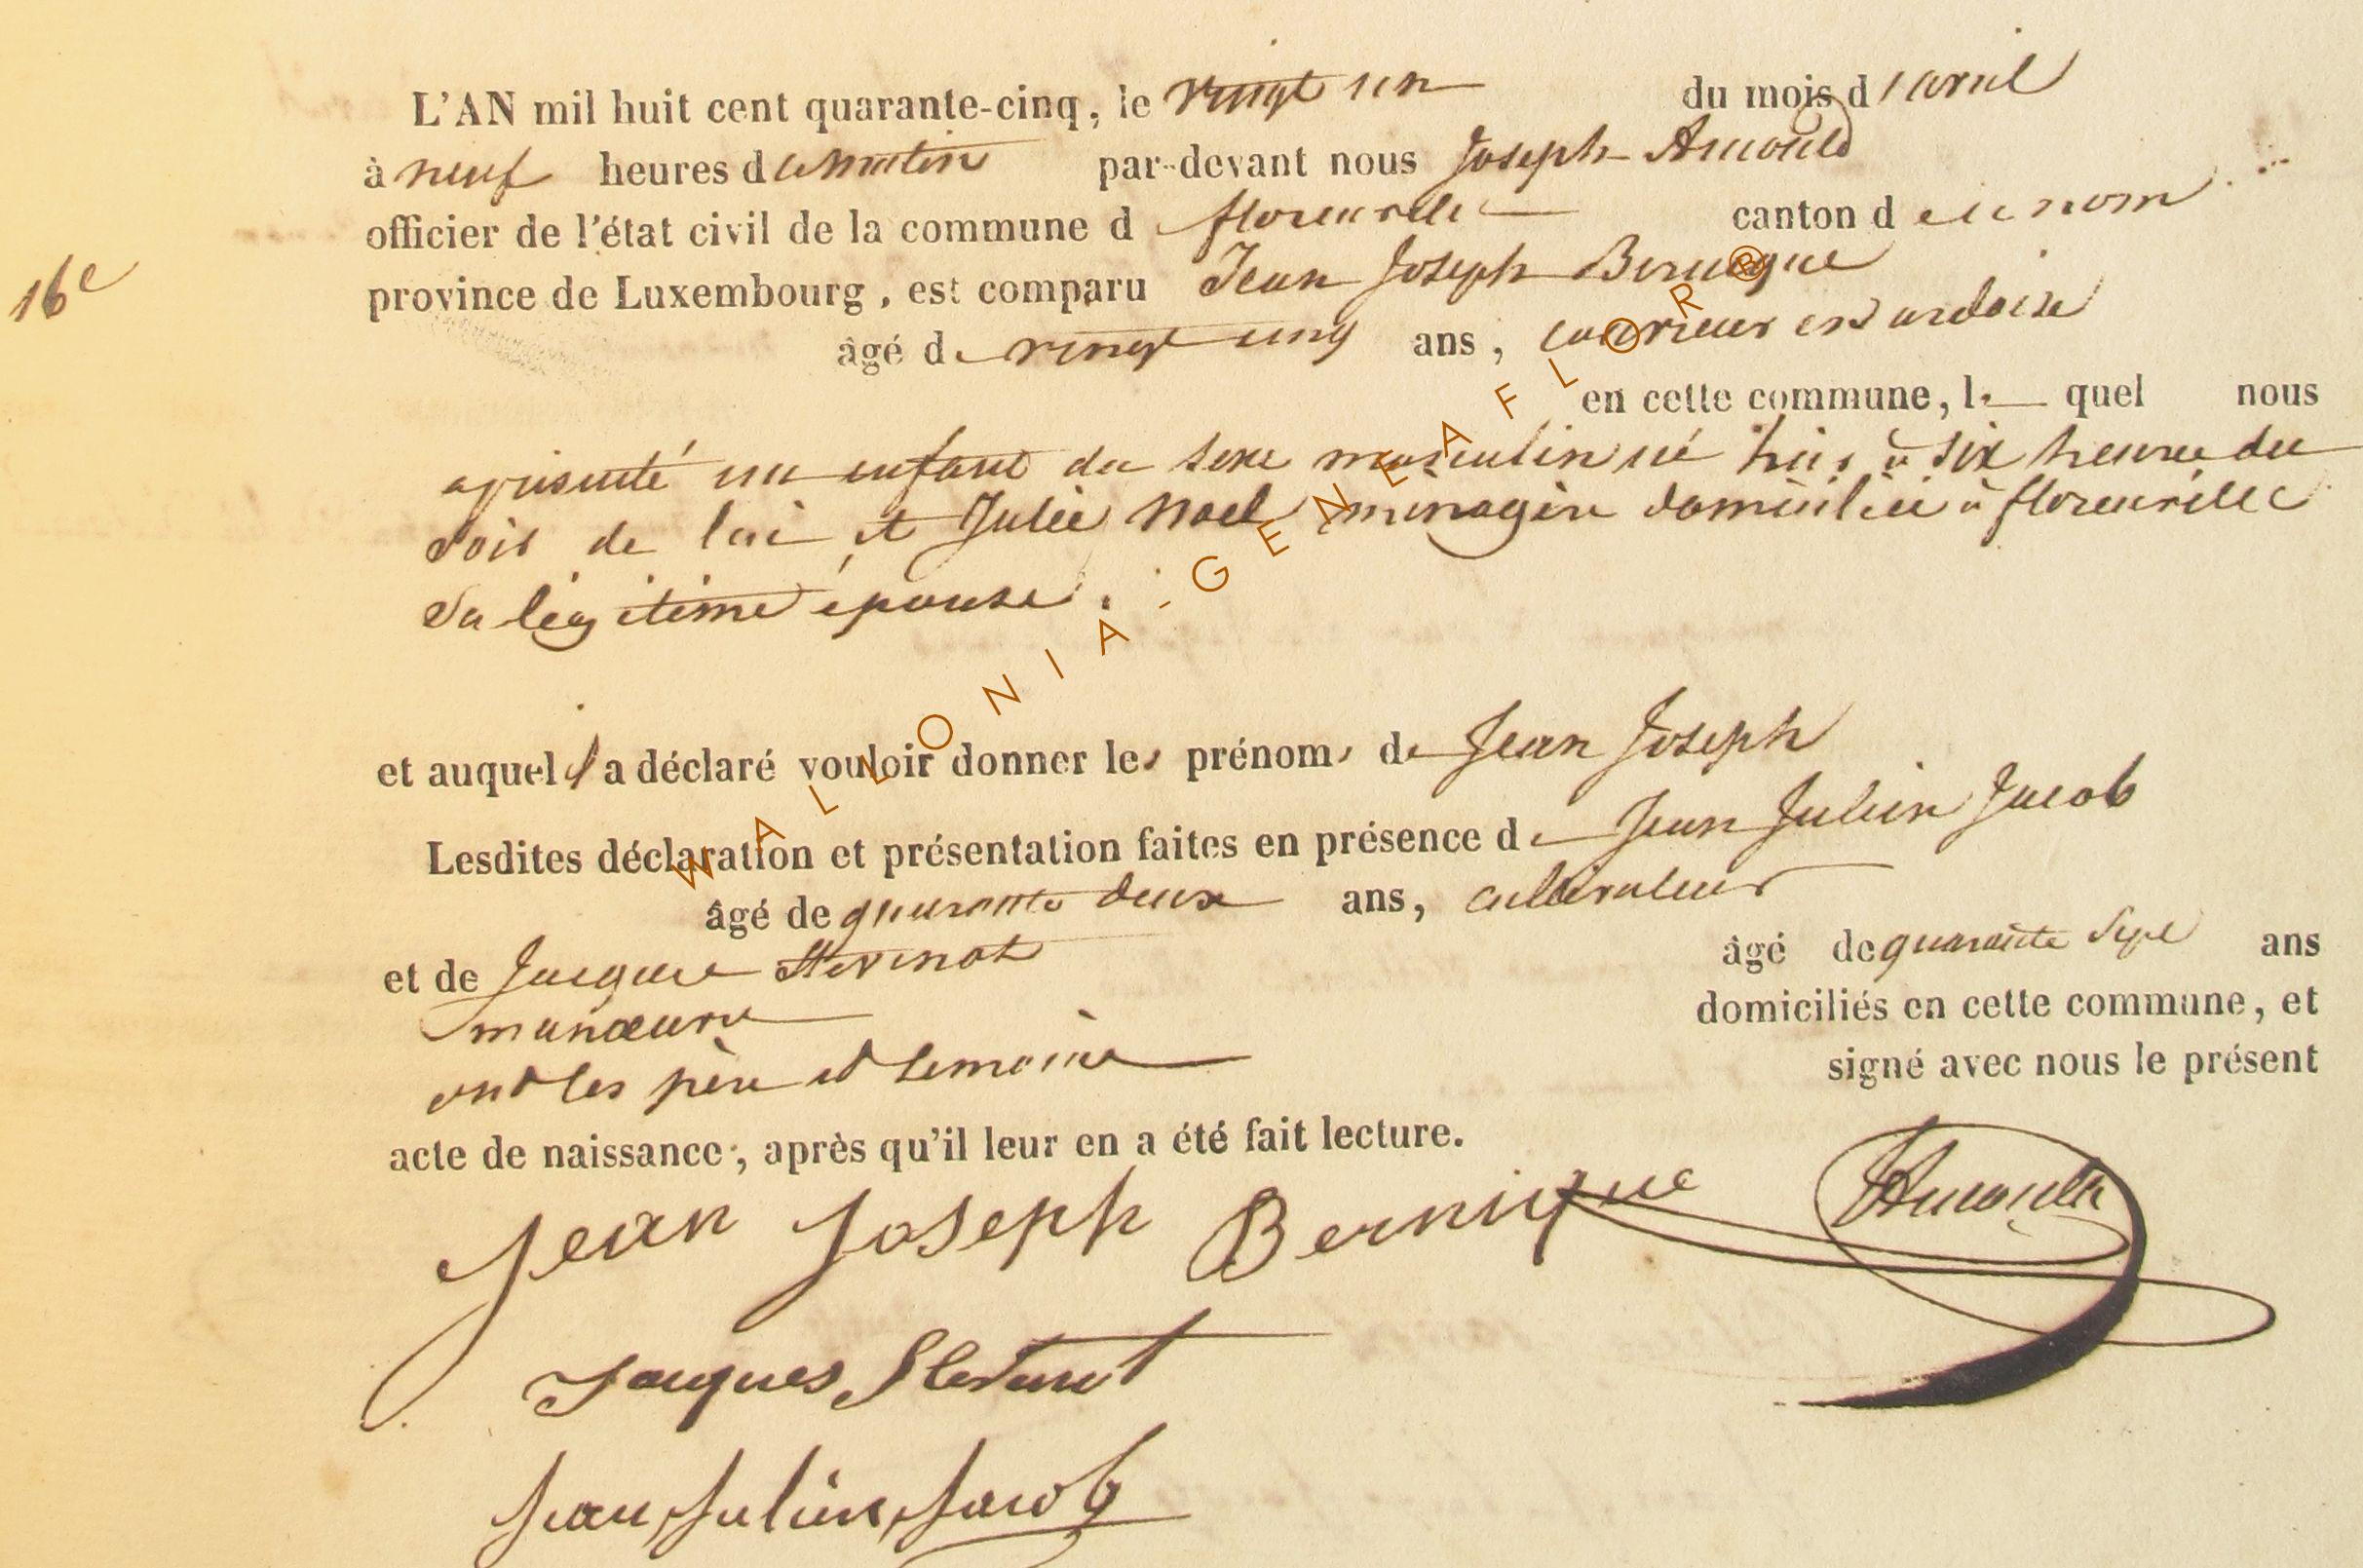 L'AN mil huit cent quarante-cinq, le vingt un du mois d'avril
à neuf heures du matin par-devant nous Joseph Arnould
officier de l'état civil de la commune d florenville canton de ce nom
16e
province de Luxembourg, est comparu Jean Joseph Bernique
âgé de vingt cinq ans, couvreur en ardoise
en cette commune, le quel nous
a présenté un enfant du sexe masculin né hier à six heure du
soir de lui et Julie Noel ménagère domiciliée à florenville
sa légitime épouse.
et auquel il a déclaré vouloir donner les prénoms de Jean Joseph
Lesdites déclaration et présentation faites en présence de Jean Julien Jacob
âgé de quarante deux ans, cultivateur
et de Jacque Stevenot âgé de quarante sept ans
manœuvre domiciliés en cette commune, et
ont les père et temoins signé avec nous le présent
acte de naissance, après qu'il leur en a été fait lecture.
Jean Joseph Bernique JArnould
Jacques Stevenot
Jean Julien Jacob
WALLONIA-GENEAFLOR®